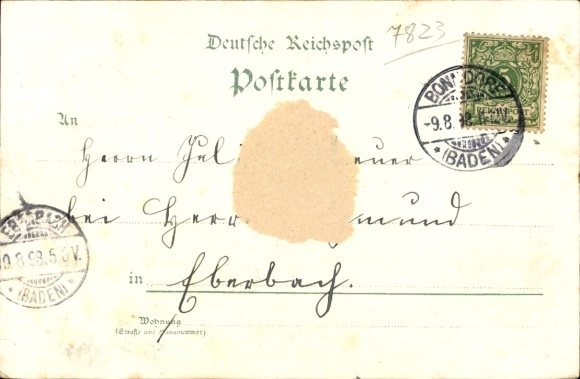 7823
Deutsche Reichspost
Postkarte
BONNDORF
-9.8.98.
(BADEN)
An
Herrn
bei Herr mund
EBERBACH
10.8.98.5.6V.
(BADEN)
in Eberbach.
Wohnung
(Straße und Hausnummer)